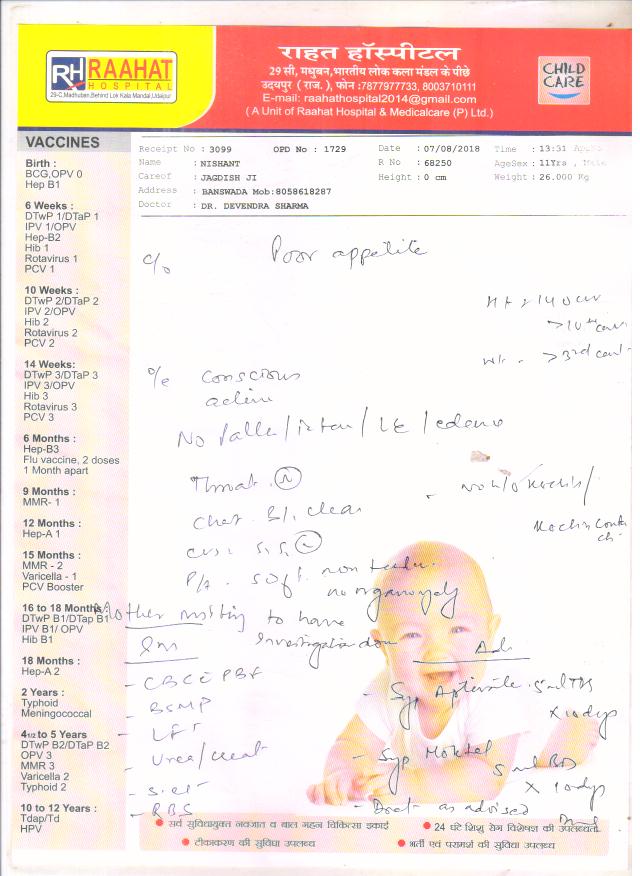 RH RAAHAT
HOSPITAL
29-C,Madhuban,Behind Lok Kala Mandal,Udaipur
राहत हॉस्पीटल
29 सी, मधुबन,भारतीय लोक कला मंडल के पीछे
उदयपुर ( राज.), फोन :7877977733, 8003710111
E-mail: raahathospital2014@gmail.com
( A Unit of Raahat Hospital & Medicalcare (P) Ltd.)
CHILD
CARE
VACCINES
Birth :
BCG,OPV 0
Hep B1
6 Weeks :
DTwP 1/DTaP 1
IPV 1/OPV
Hep-B2
Hib 1
Rotavirus 1
PCV 1
10 Weeks :
DTwP 2/DTaP 2
IPV 2/OPV
Hib 2
Rotavirus 2
PCV 2
14 Weeks:
DTwP 3/DTaP 3
IPV 3/OPV
Hib 3
Rotavirus 3
PCV 3
6 Months :
Hep-B3
Flu vaccine, 2 doses
1 Month apart
9 Months :
MMR- 1
12 Months :
Hep-A 1
15 Months :
MMR - 2
Varicella - 1
PCV Booster
16 to 18 Months:
DTwP B1/DTap B1
IPV B1/ OPV
Hib B1
18 Months :
Hep-A 2
2 Years :
Typhoid
Meningococcal
4 1/2 to 5 Years
DTwP B2/DTaP B2
OPV 3
MMR 3
Varicella 2
Typhoid 2
10 to 12 Years :
Tdap/Td
HPV
Receipt No : 3099 OPD No : 1729 Date : 07/08/2018 Time : 13:31
Name : NISHANT R No : 68250 AgeSex : 11Yrs , Male
Careof : JAGDISH JI Height : 0 cm Weight : 26.000 Kg
Address : BANSWADA Mob:8058618287
Doctor : DR. DEVENDRA SHARMA
c/o Poor appetite
Ht > 140 cm
> 10th
wt - > 3rd
o/e Conscious
active
No Pallor / / LE / edema
Throat - N
Chest - B/L clear
CVS : S1S2 N
P/A - soft, non tender
no organomegaly
Mother to have
Investigation done
Inv Adv
- CBC c PBF
- BSMP
- LFT
- Urea/creat
- RBS
- Syp 5ml TDS
x 10 days
- Syp 5ml BD
x 10 days
- Diet as advised
सर्व सुविधायुक्त नवजात व बाल गहन चिकित्सा इकाई
24 घंटे शिशु रोग विशेषज्ञ की उपलब्धता
टीकाकरण की सुविधा उपलब्ध
भर्ती एवं परामर्श की सुविधा उपलब्ध